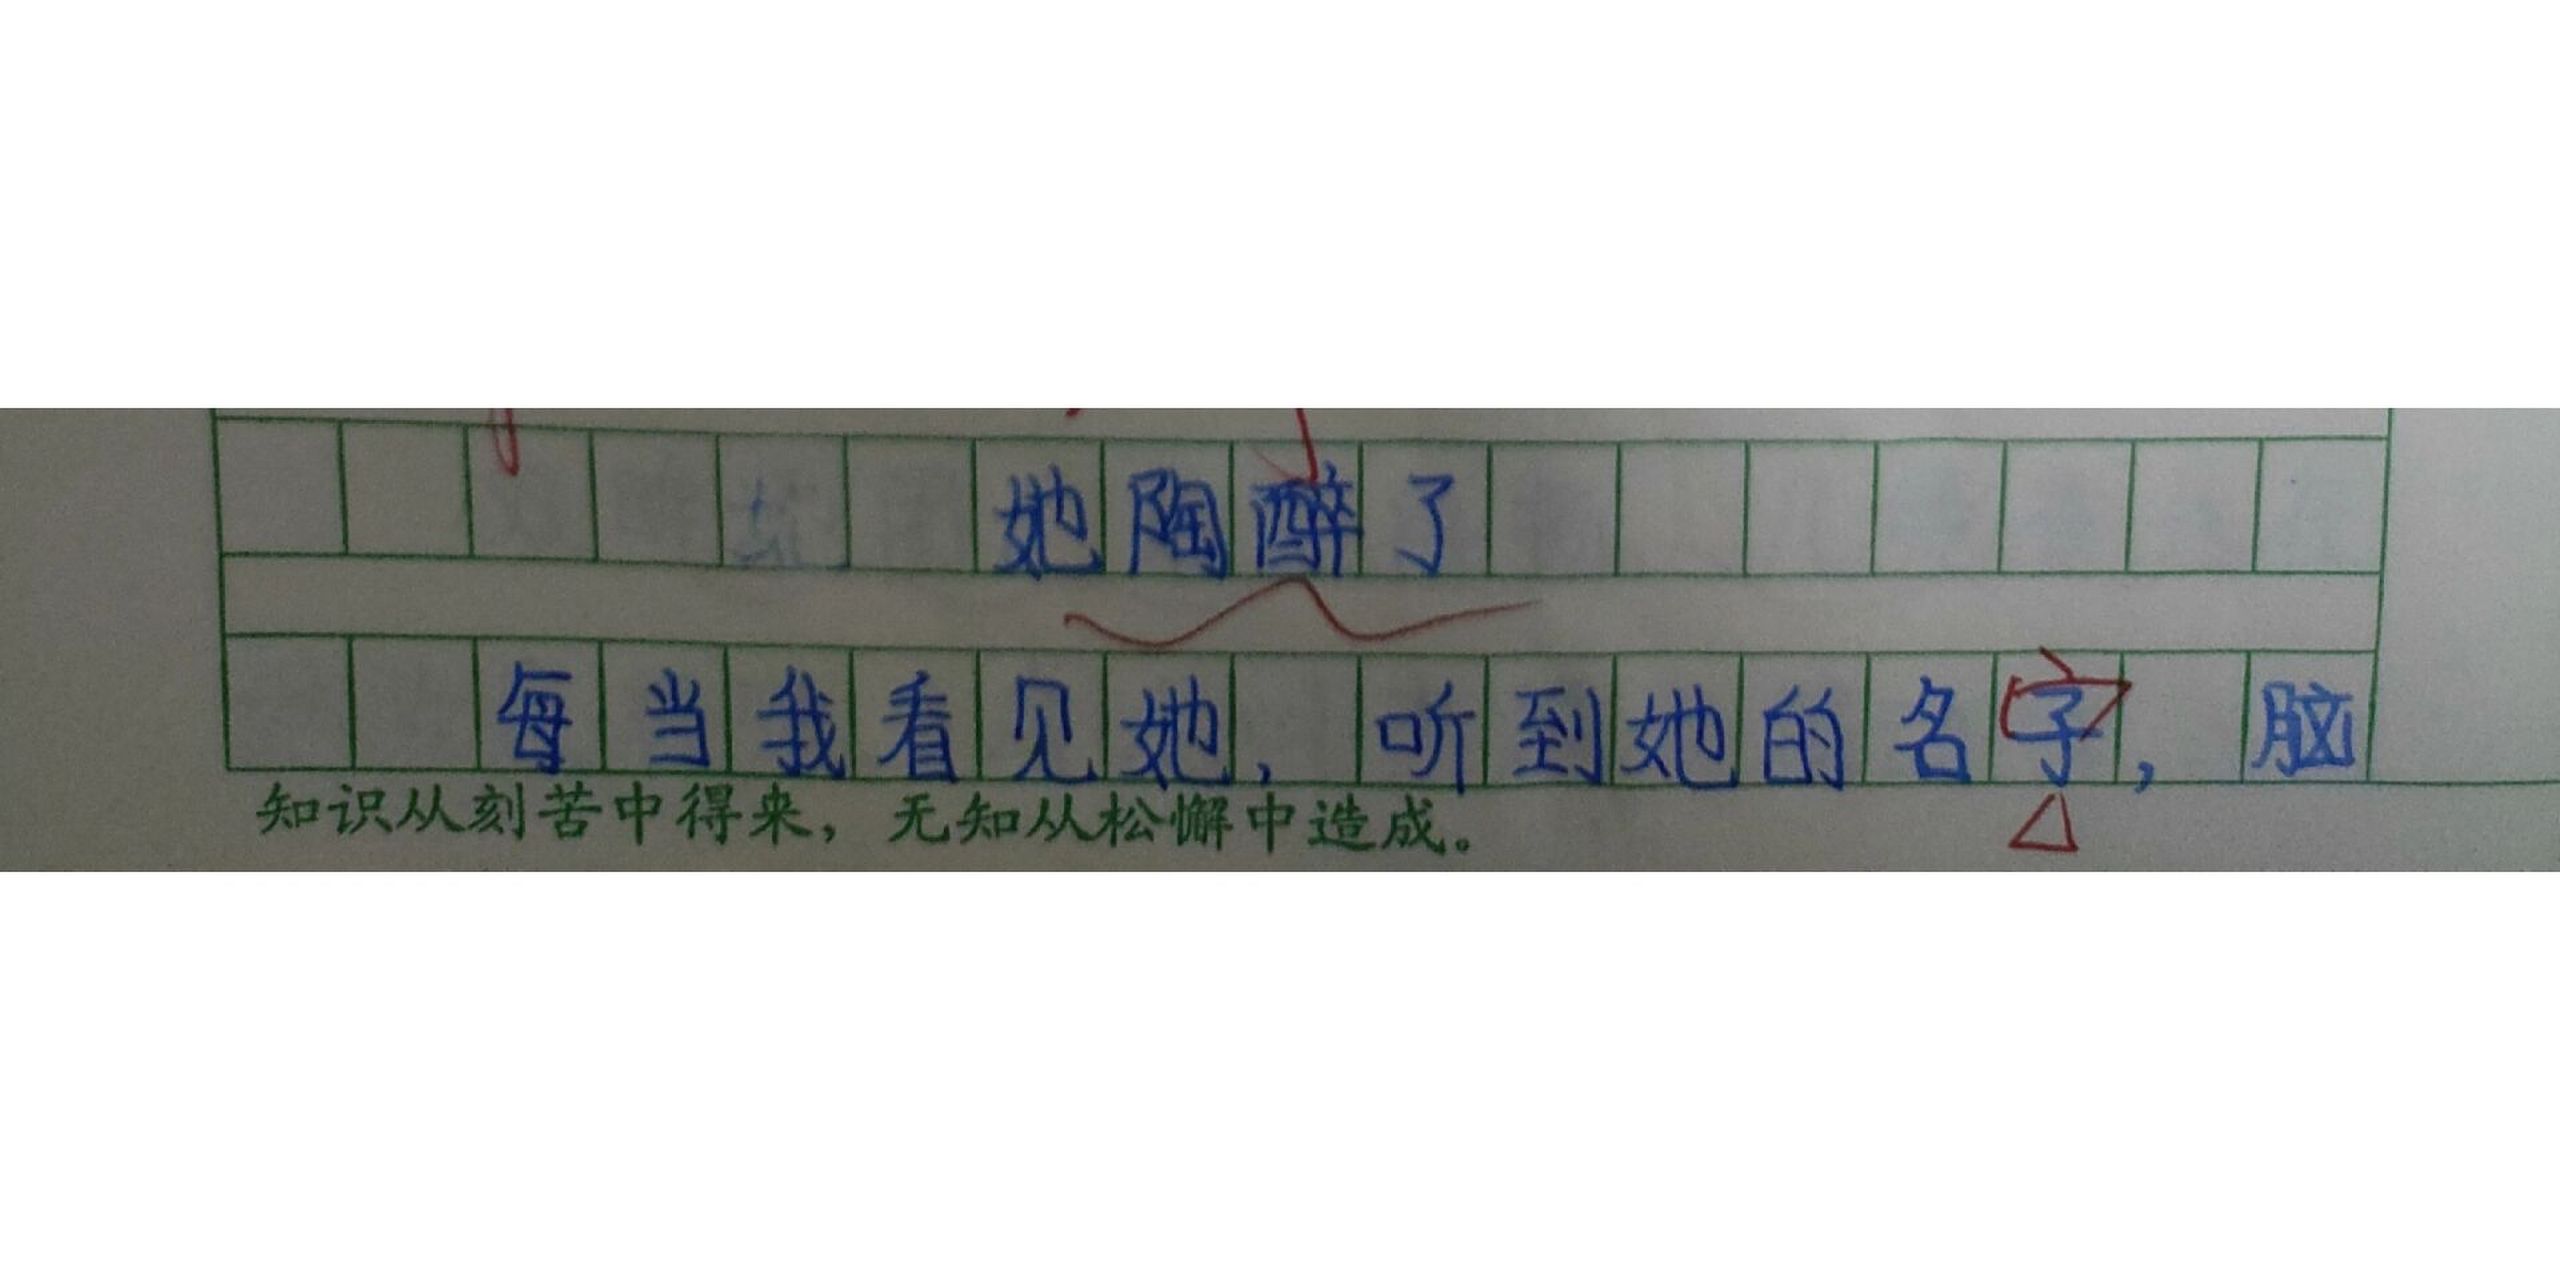 她陶醉了
每当我看见她，听到她的名字，脑
知识从刻苦中得来，无知从松懈中造成。